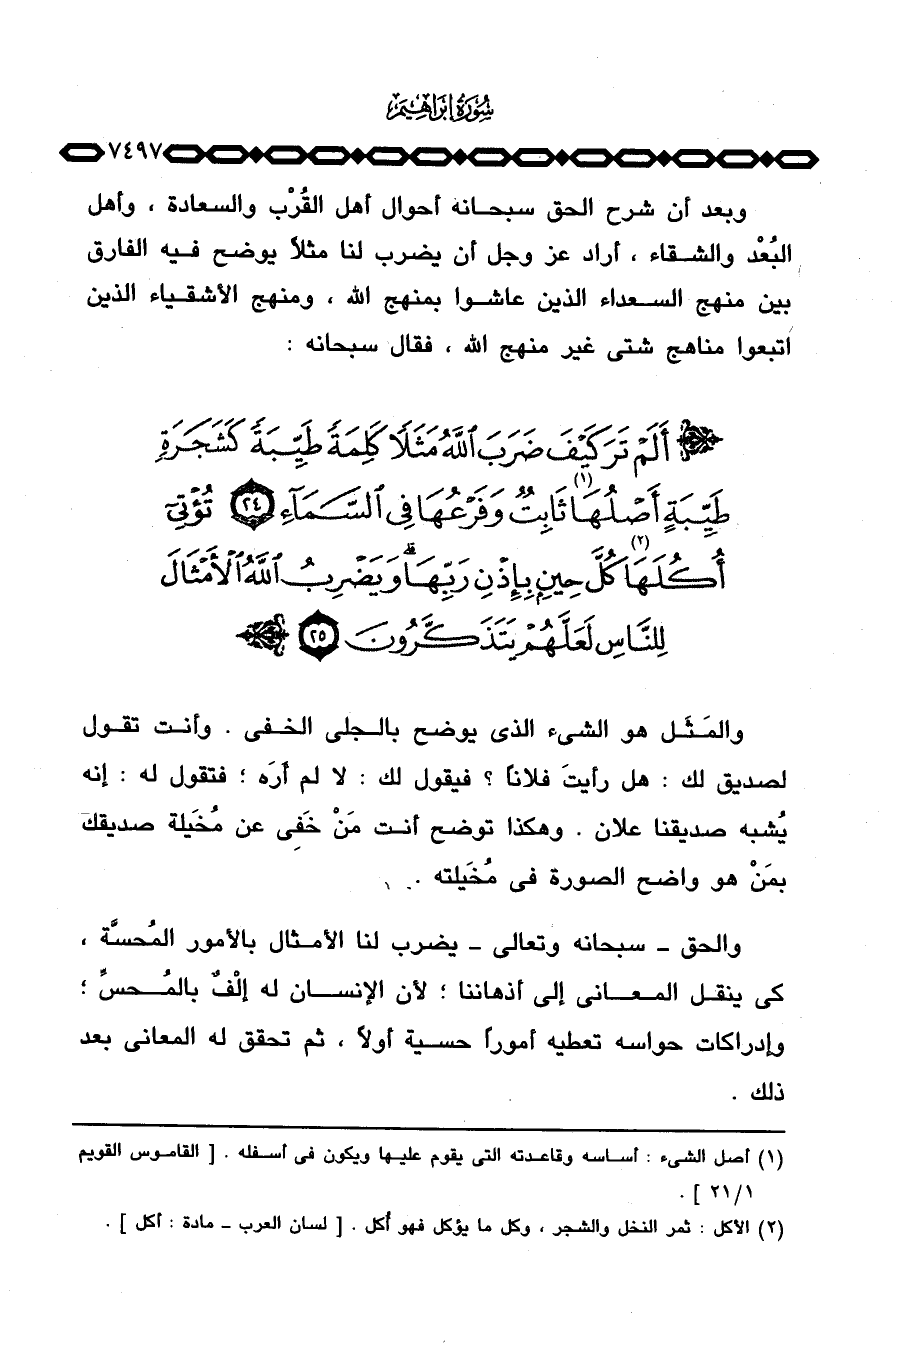 سُورَةُ إِبْرَاهِيم
٧٤٩٧
وبعد أن شرح الحق سبحانه أحوال أهل القُرْب والسعادة ، وأهل
البُعْد والشقاء ، أراد عز وجل أن يضرب لنا مثلاً يوضح فيه الفارق
بين منهج السعداء الذين عاشوا بمنهج الله ، ومنهج الأشقياء الذين
اتبعوا مناهج شتى غير منهج الله ، فقال سبحانه :
أَلَمْ تَرَ كَيْفَ ضَرَبَ ٱللَّهُ مَثَلًا كَلِمَةً طَيِّبَةً كَشَجَرَةٍ
طَيِّبَةٍ أَصْلُهَا (١) ثَابِتٌ وَفَرْعُهَا فِى ٱلسَّمَآءِ ٢٤ تُؤْتِىٓ
أُكُلَهَا (٢) كُلَّ حِينٍۭ بِإِذْنِ رَبِّهَاۗ وَيَضْرِبُ ٱللَّهُ ٱلْأَمْثَالَ
لِلنَّاسِ لَعَلَّهُمْ يَتَذَكَّرُونَ ٢٥
والمَثَل هو الشىء الذى يوضح بالجلى الخفى . وأنت تقول
لصديق لك : هل رأيتَ فلاناً ؟ فيقول لك : لا لم أَرَه ؛ فتقول له : إنه
يُشبه صديقنا علان . وهكذا توضح أنت مَنْ خَفِى عن مُخَيلة صديقك
بمَنْ هو واضح الصورة فى مُخَيلته .
والحق – سبحانه وتعالى – يضرب لنا الأمثال بالأمور المُحسَّة ،
كى ينقل المعانى إلى أذهاننا ؛ لأن الإنسان له إلْفٌ بالمُحسِّ ؛
وإدراكات حواسه تعطيه أموراً حسية أولاً ، ثم تحقق له المعانى بعد
ذلك .
(١) أصل الشىء : أساسه وقاعدته التى يقوم عليها ويكون فى أسفله . [ القاموس القويم
٢١/١ ] .
(٢) الأكل : ثمر النخل والشجر ، وكل ما يؤكل فهو أُكل . [ لسان العرب – مادة : أكل ] .